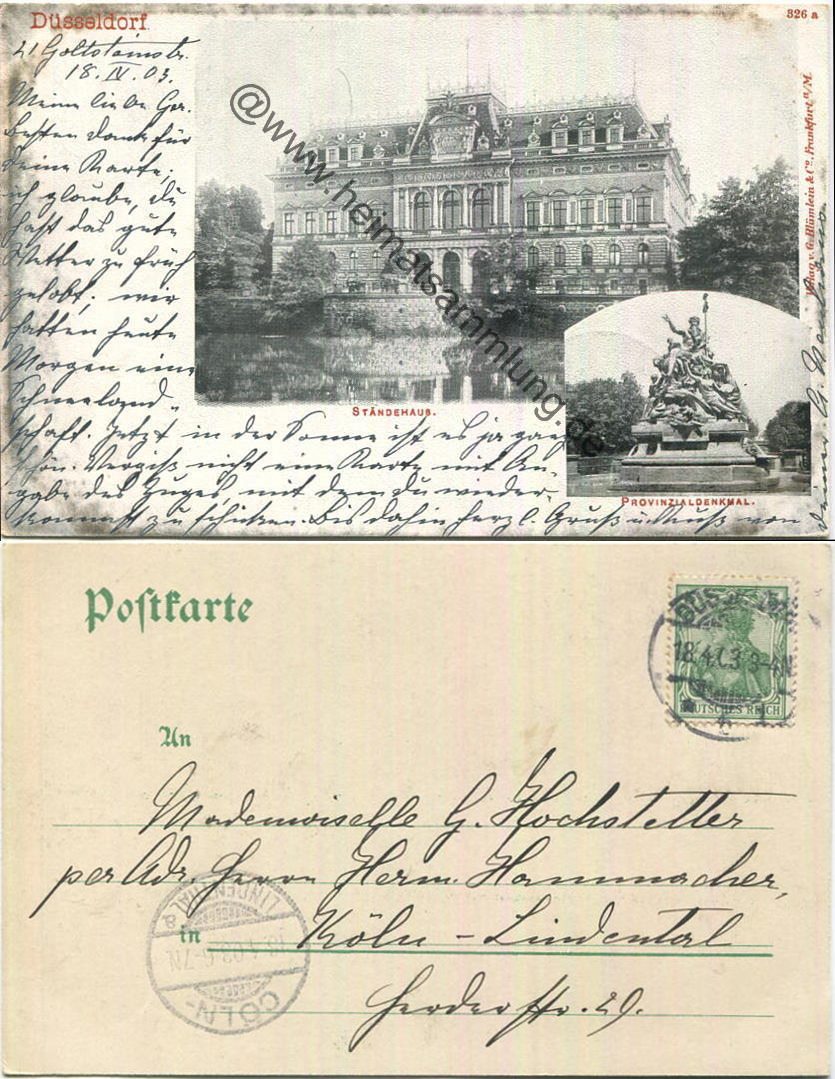 Düsseldorf.
326 a
21 Goltsteinstr.
18. IV. 03.
Meine liebe
besten Dank für
Deine Karte;
ich glaube, du
hast das gute
Wetter zu früh
gelobt; wir
hatten heute
Morgen eine
Schneeland-
schaft. Jetzt in der Sonne ist es ja ganz
schön. Vergiß nicht eine Karte mit An-
gabe des Zuges, mit dem du wieder-
kommst zu schicken. Bis dahin herzl. Gruß u. Kuß von
Deiner
STÄNDEHAUS.
PROVINZIALDENKMAL.
Verlag v. G. Blümlein & Co., Frankfurt a/M.
@www.heimatsammlung.de
Postkarte
18.4.03 3-4N
DEUTSCHES REICH
An
Mademoiselle G. Hochstetter
per Adr. Herrn Herm. Hammacher,
in Köln - Lindental
Herderstr. 29.
LINDENTHAL
18.4.03 6-7N
CÖLN-